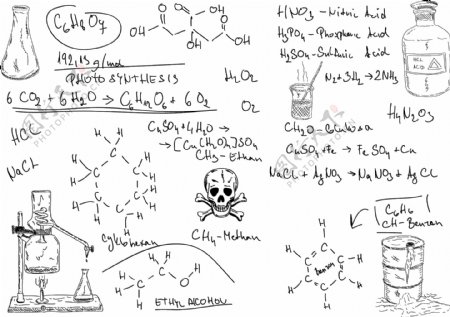 C6H8O7
192,13 g/mol
PHOTOSYNTHESIS
6 CO2 + 6 H2O → C6H12O6 + 6 O2
HCL
NaCL
H2O2
O2
CuSO4 + 4H2O →
→ [Cu(H2O)4]SO4
CH3-Ethan
cyklohexan
CH4-Methan
ETHYL ALCOHOL
HNO3 - Nitric Acid
H3PO4 - Phosphoric Acid
H2SO4 - Sulfuric Acid
N2 + 3H2 → 2NH3
HCL
ACID
H4N2O3
CH2O - Glukosa
CuSO4 + Fe → FeSO4 + Cu
NaCl + AgNO3 → NaNO3 + AgCl
C6H6
CH-Benzan
Benzen
O
OH
HO
O
OH
OH
O
H
C
O
H